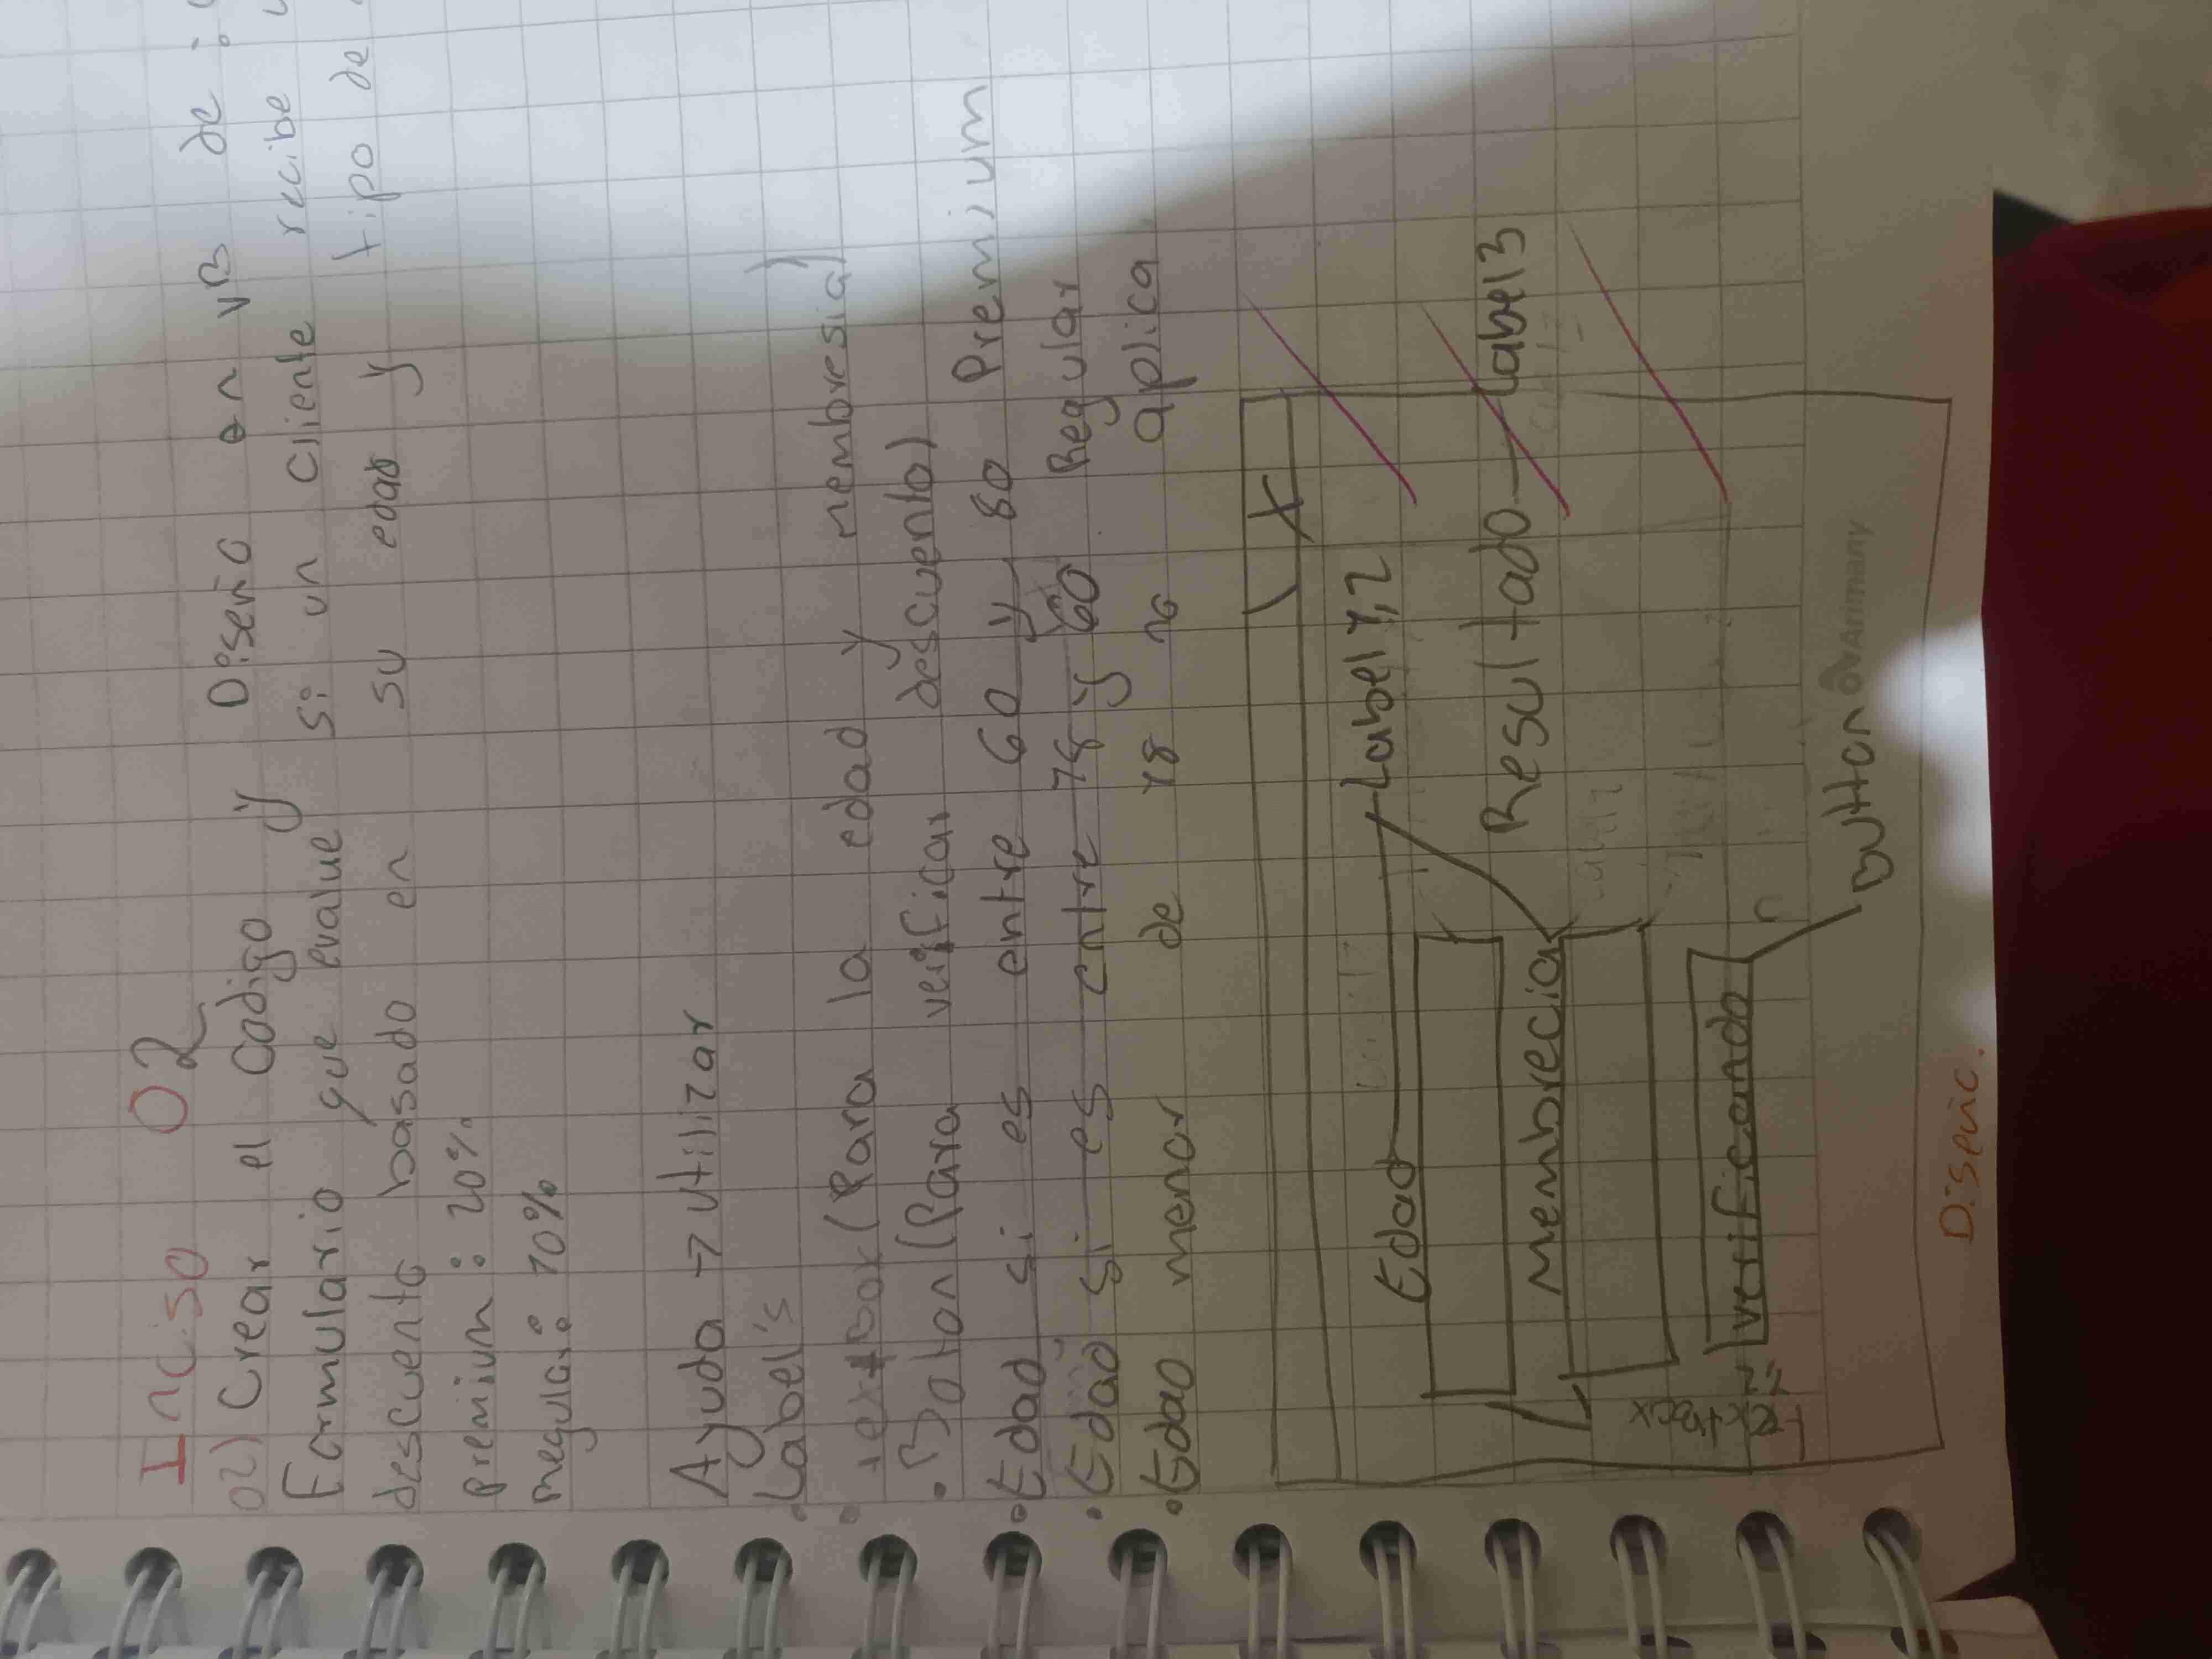 Inciso 02
02) Crear el Codigo y Diseño en VB de :
Formulario que evalue si un cliente recibe
descuento basado en su edad y tipo de
premium : 20%
regular : 10%
Ayuda → utilizar
• Label's
• textBox (Para la edad y membresia)
• Boton (Para verificar descuento)
• Edad si es entre 60 y 80 Premium
• Edad si es entre 18 y 60 Regular
• Edad menor de 18 no aplica
X
Edad
Label 1,2
Membrecia
Resultado
Label 3
Textbox
verificando
Button
Arimany
Diseño.